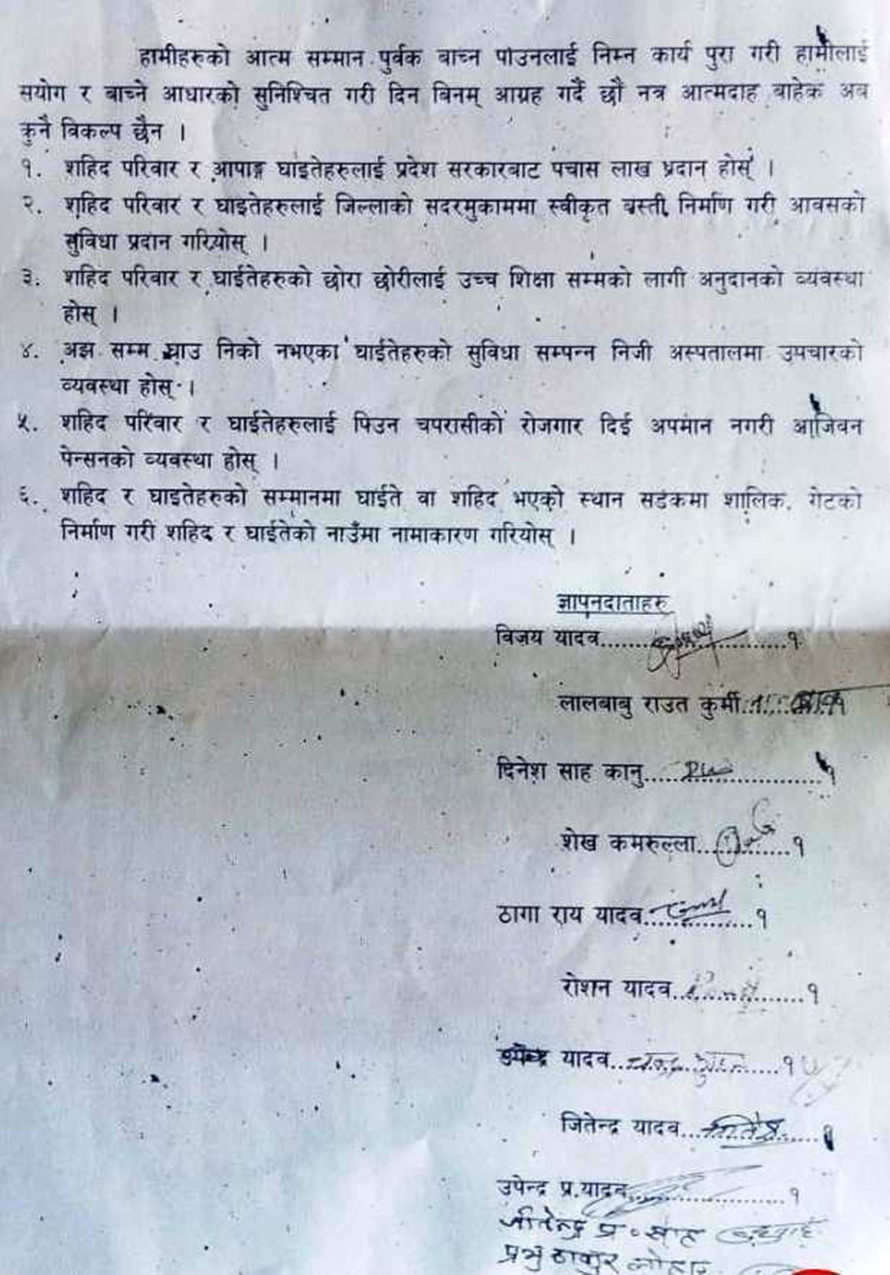 हामीहरुको आत्म सम्मान पुर्वक बाच्न पाउनलाई निम्न कार्य पुरा गरी हामीलाई
सयोग र बाच्ने आधारको सुनिश्चित गरी दिन बिनम् आग्रह गर्दै छौं नत्र आत्मदाह बाहेक अब
कुनै विकल्प छैन ।
१. शहिद परिवार र आपाङ्ग घाइतेहरुलाई प्रदेश सरकारबाट पचास लाख प्रदान होस् ।
२. शहिद परिवार र घाइतेहरुलाई जिल्लाको सदरमुकाममा स्वीकृत बस्ती निर्माण गरी आवसको
सुविधा प्रदान गरियोस् ।
३. शहिद परिवार र घाईतेहरुको छोरा छोरीलाई उच्च शिक्षा सम्मको लागी अनुदानको व्यवस्था
होस् ।
४. अझ सम्म घाउ निको नभएका घाईतेहरुको सुविधा सम्पन्न निजी अस्पतालमा उपचारको
व्यवस्था होस् ।
५. शहिद परिवार र घाईतेहरुलाई पिउन चपरासीको रोजगार दिई अपमान नगरी आजिवन
पेन्सनको व्यवस्था होस् ।
६. शहिद र घाइतेहरुको सम्मानमा घाईते वा शहिद भएको स्थान सडकमा शालिक, गेटको
निर्माण गरी शहिद र घाईतेको नाउँमा नामाकारण गरियोस् ।
ज्ञापनदाताहरु
विजय यादव.....................१
लालबाबु राउत कुर्मी..............१
दिनेश साह कानु.....................१
शेख कमरुल्ला............१
ठागा राय यादव................१
रोशन यादव.................१
यादव....................१
जितेन्द्र यादव...................१
उपेन्द्र प्र.यादव.....................१
जीतेन्द्र प्र॰ साह
प्रभु ठाकुर लोहार